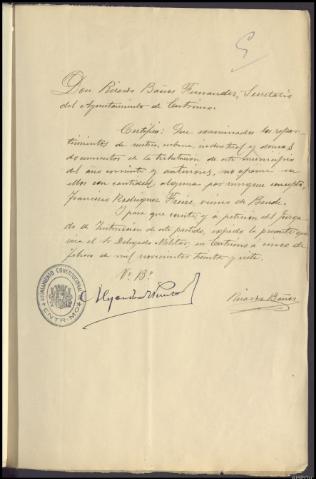 Don Ricardo Báños Fernandez, Secretario
del Ayuntamiento de Entrimo.
Certifico: Que examinados los repar-
timientos de rustica, urbana, industrial y demas
documentos de la tributacion de este municipio
del año corriente y anteriores, no aparece en
ellos con cantidad alguna por ningun concepto,
Francisco Rodriguez Freire, vecino de Bande.
Y para que conste y a peticion del Juzga
do de Instruccion de este partido, expido la presente que
visa el Sr Delegado Militar, en Entrimo a cinco de
Febrero de mil novecientos treinta y siete.
Vº Bº
AYUNTAMIENTO CONSTITUCIONAL
ENTRIMO
Ricardo Báños